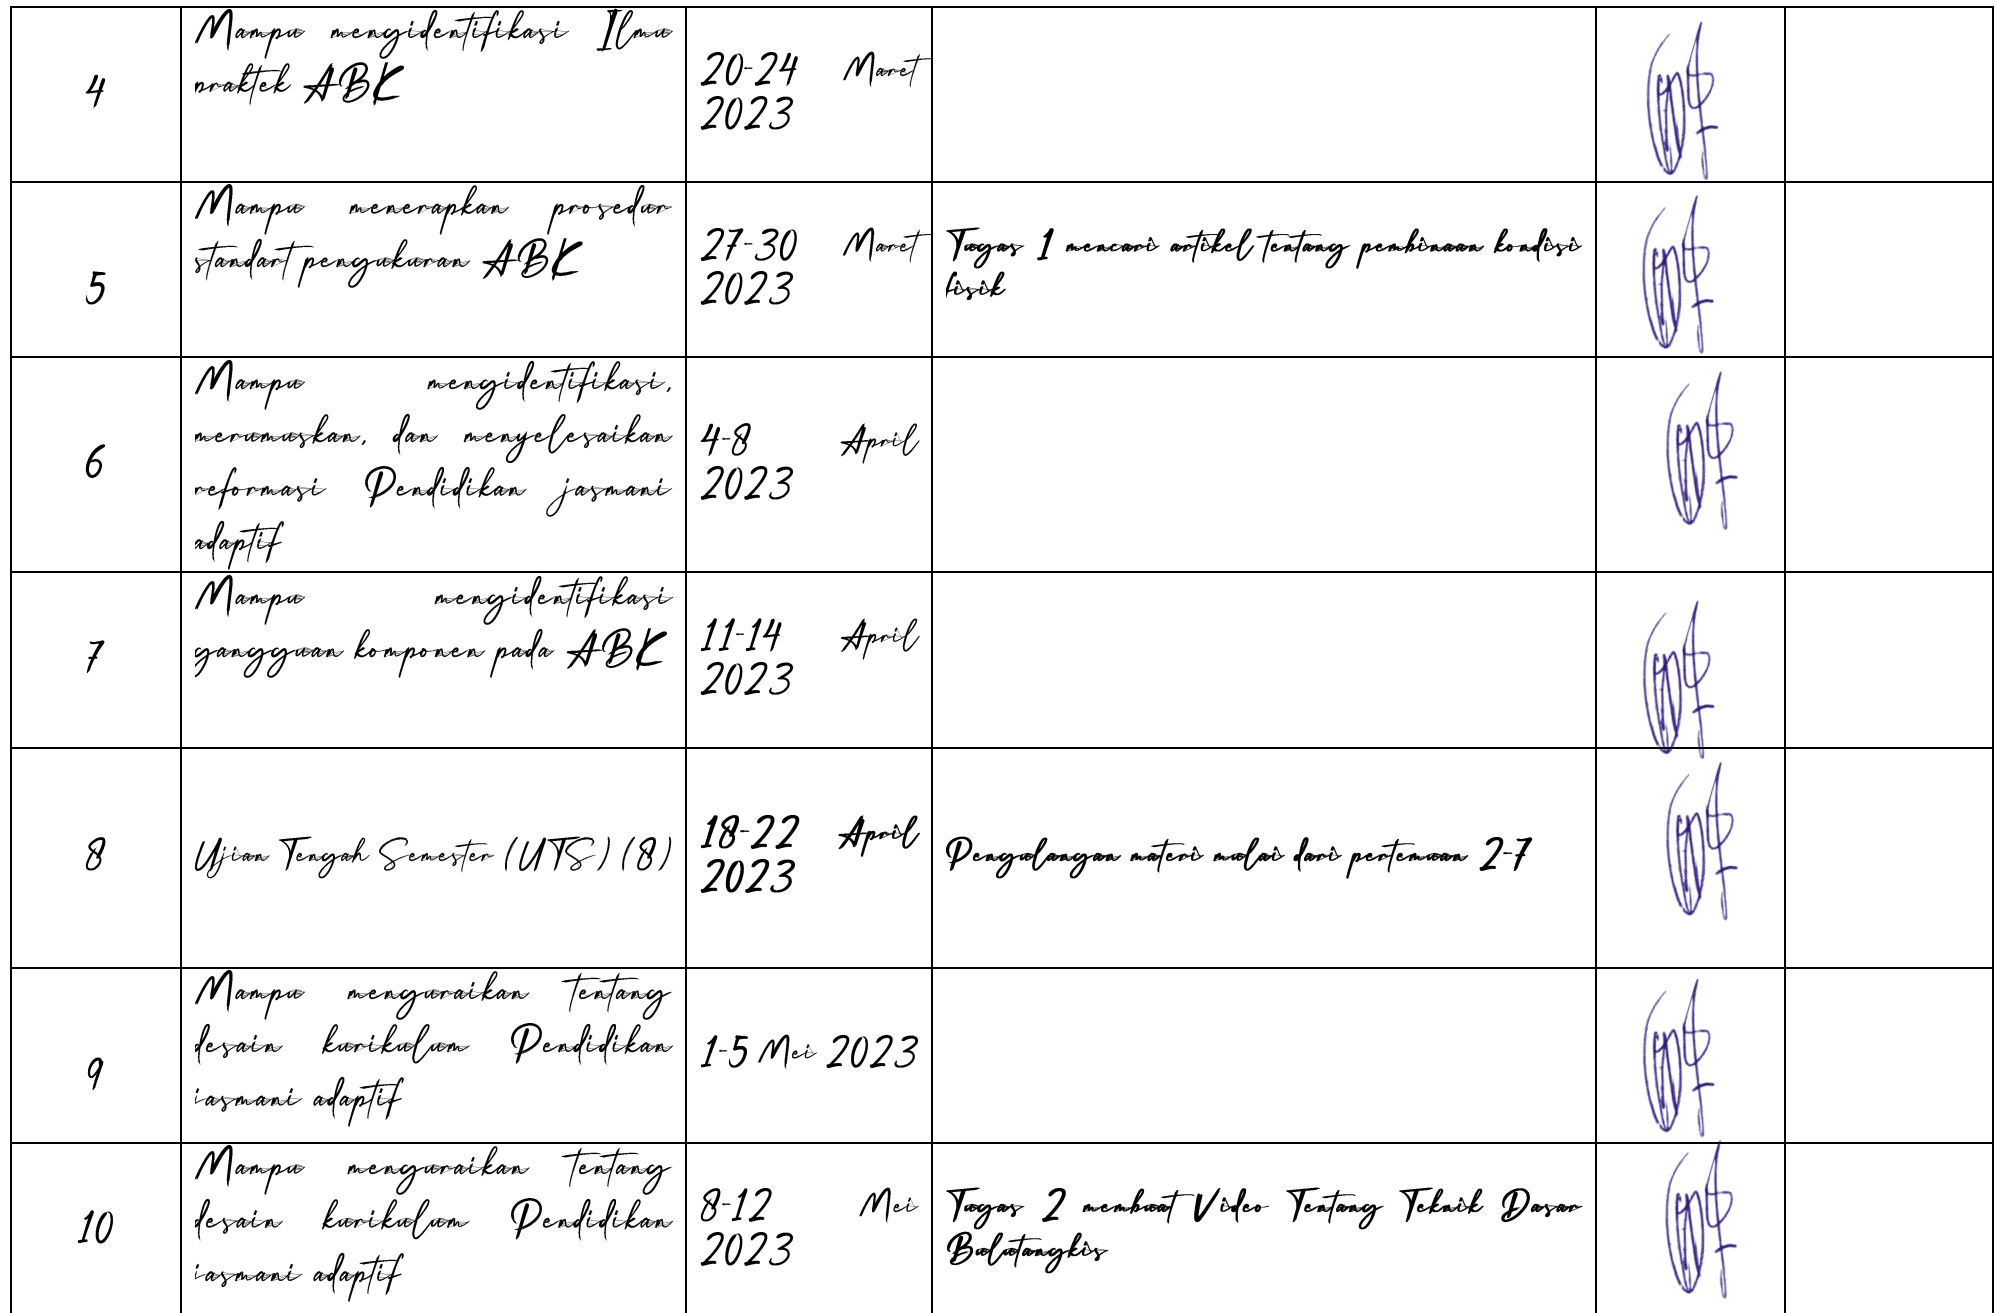 4
Mampu mengidentifikasi Ilmu
praktek ABK
20-24 Maret
2023
5
Mampu menerapkan prosedur
standart pengukuran ABK
27-30 Maret
2023
Tugas 1 mencari artikel tentang pembinaan kondisi
fisik
6
Mampu mengidentifikasi,
merumuskan, dan menyelesaikan
reformasi Pendidikan jasmani
adaptif
4-8 April
2023
7
Mampu mengidentifikasi
gangguan komponen pada ABK
11-14 April
2023
8
Ujian Tengah Semester (UTS) (8)
18-22 April
2023
Pengulangan materi mulai dari pertemuan 2-7
9
Mampu menguraikan tentang
desain kurikulum Pendidikan
jasmani adaptif
1-5 Mei 2023
10
Mampu menguraikan tentang
desain kurikulum Pendidikan
jasmani adaptif
8-12 Mei
2023
Tugas 2 membuat Video Tentang Teknik Dasar
Bulutangkis